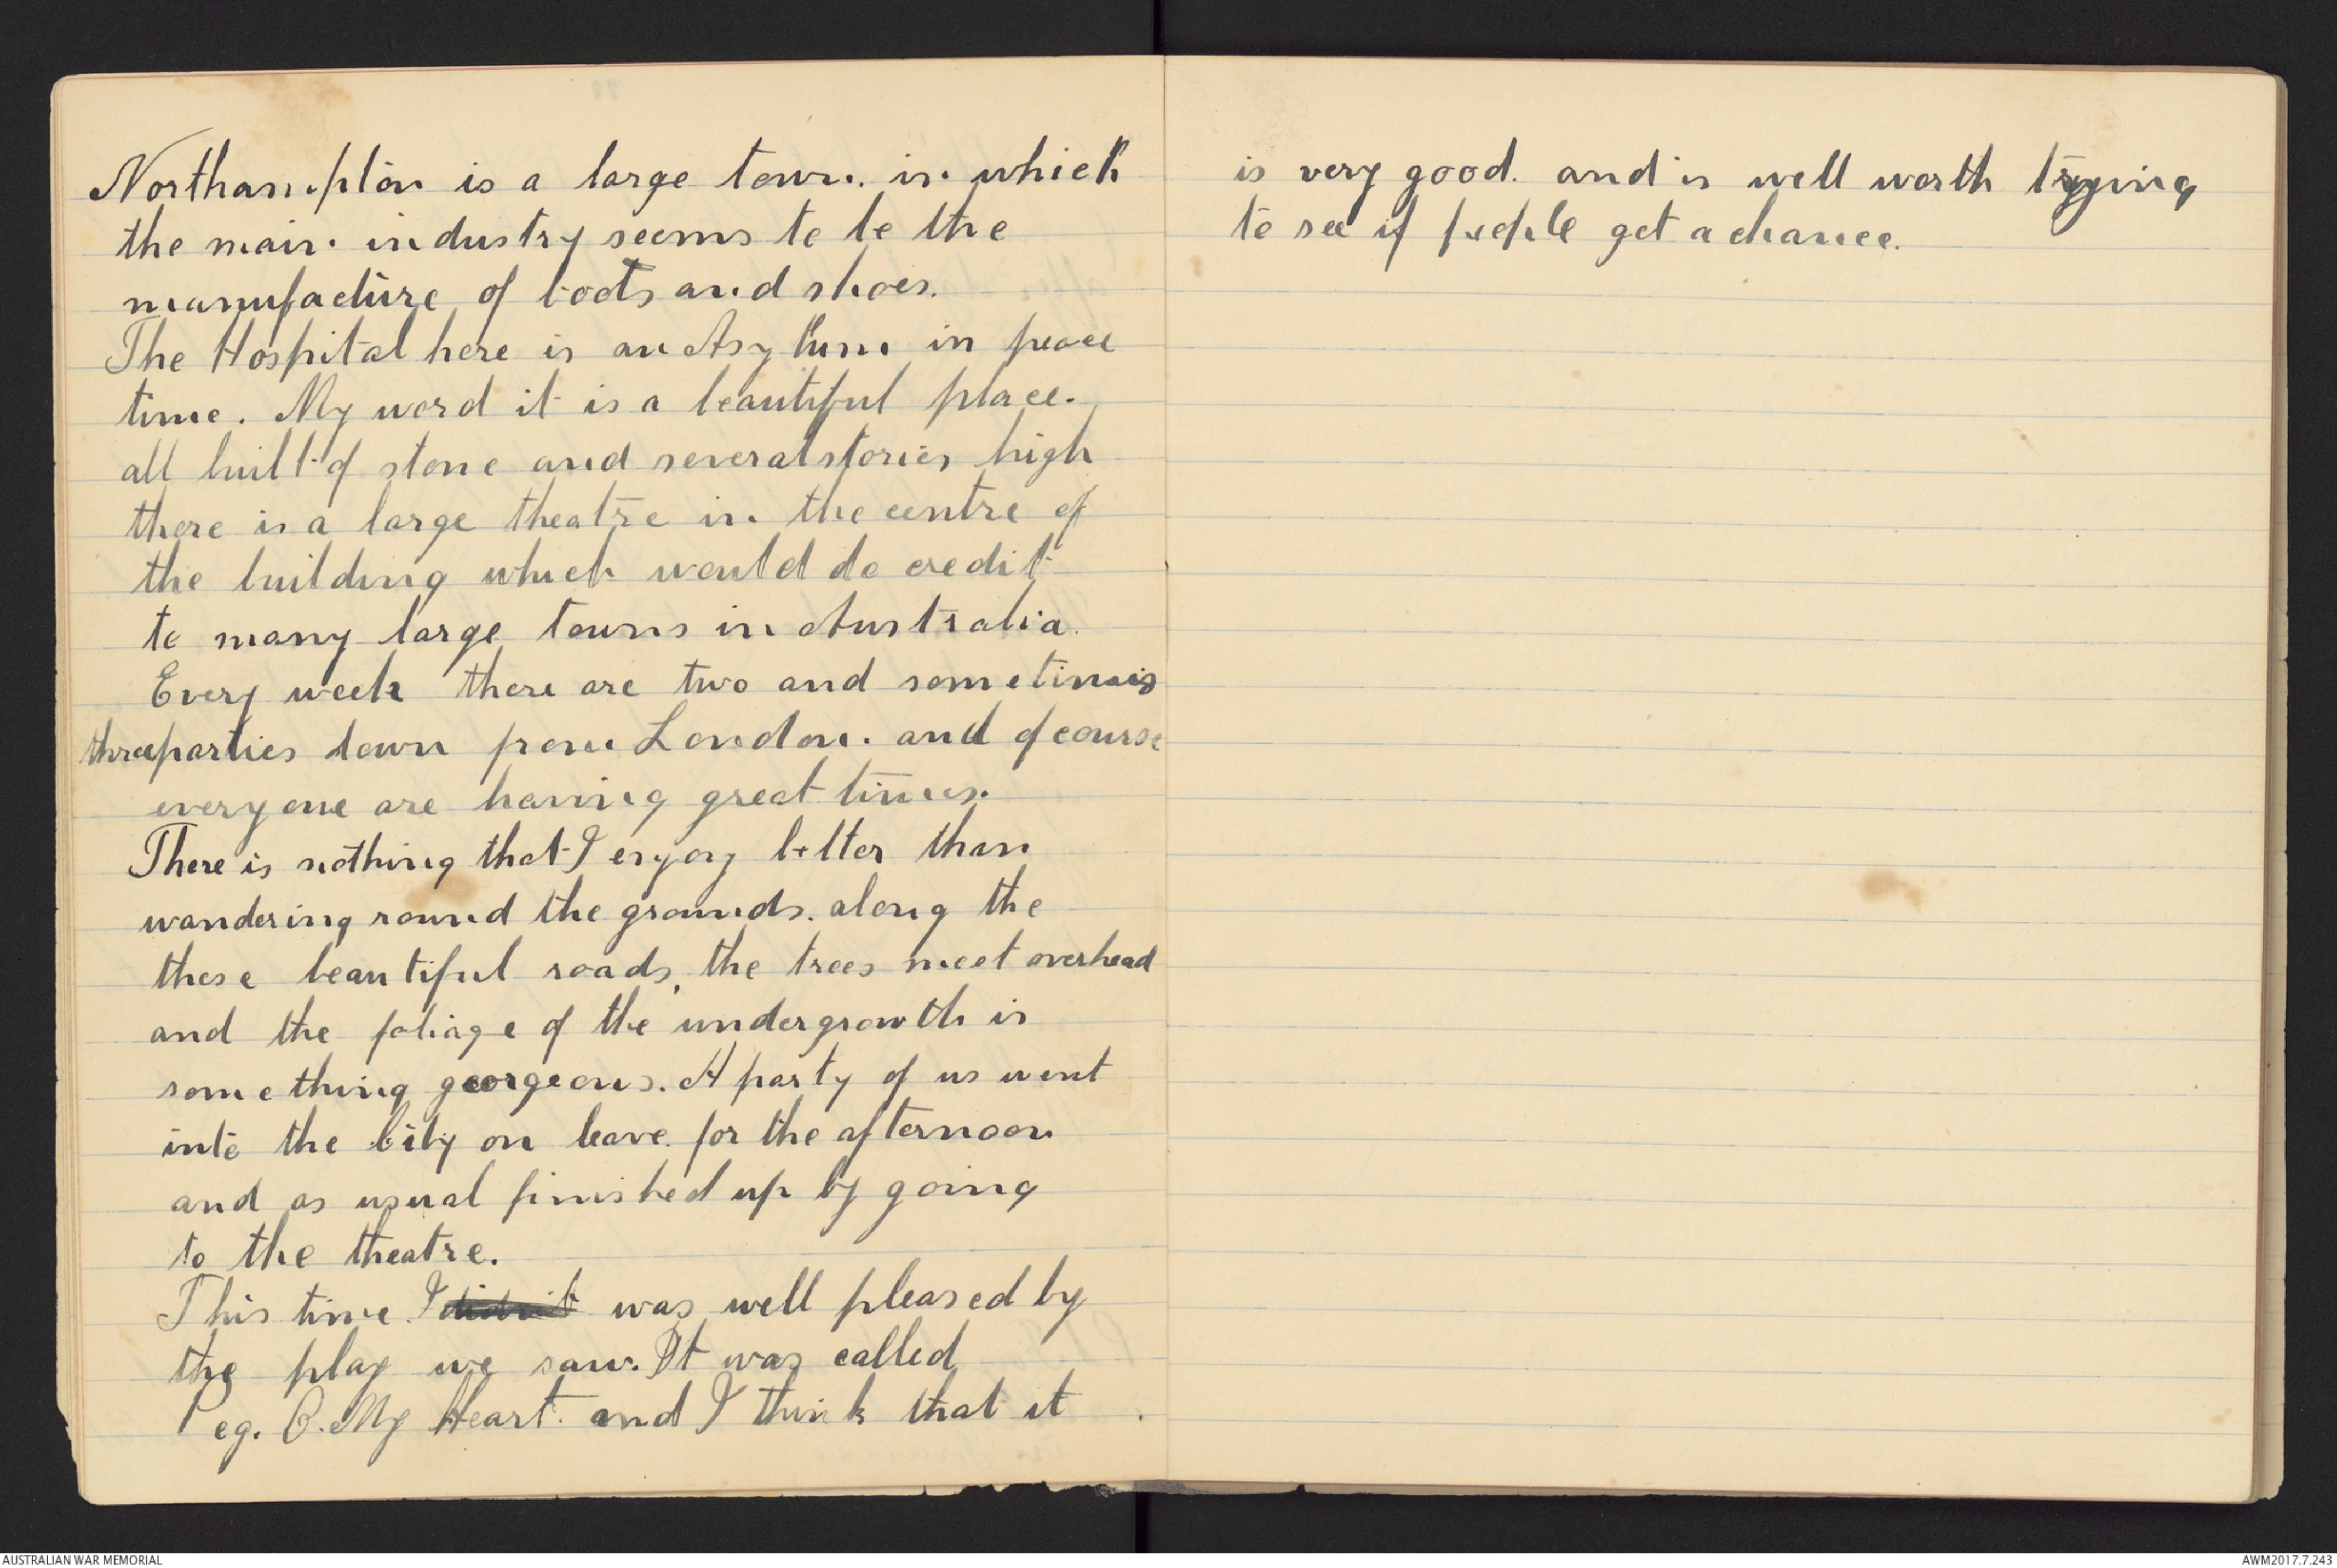 Northampton is a large town. in which
the main industry seems to be the
manufacture of boots and shoes.
The Hospital here is an Asylum in peace
time. My word it is a beautiful place.
all built of stone and several stories high
there is a large theatre in the centre of
the building which would do credit
to many large towns in Australia.
Every week there are two and sometimes
three parties down from London. and of course
everyone are having great times.
There is nothing that I enjoy better than
wandering round the grounds. along the
these beautiful roads, the trees meet overhead
and the foliage of the undergrowth is
something georgeous. A party of us went
into the City on leave. for the afternoon
and as usual finished up by going
to the theatre.
This time. I didn't was well pleased by
the play we saw. It was called
Peg. O. My Heart. and I think that it
is very good. and is well worth trying
to see if people get a chance.
AUSTRALIAN WAR MEMORIAL
AWM2017.7.243